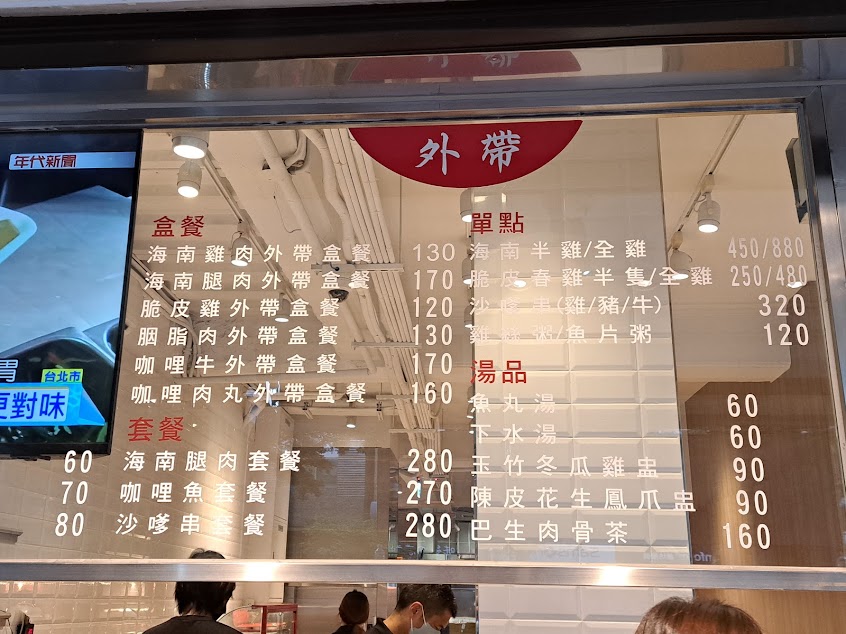 外帶
年代新聞
盒餐
海南雞肉外帶盒餐 130
海南腿肉外帶盒餐 170
脆皮雞外帶盒餐 120
胭脂肉外帶盒餐 130
咖哩牛外帶盒餐 170
咖哩肉丸外帶盒餐 160
套餐
海南腿肉套餐 280
咖哩魚套餐 270
沙嗲串套餐 280
60
70
80
單點
海南半雞/全雞 450/880
脆皮春雞半隻/全雞 250/480
沙嗲串(雞/豬/牛) 320
雞絲粥/魚片粥 120
湯品
魚丸湯 60
下水湯 60
玉竹冬瓜雞盅 90
陳皮花生鳳爪盅 90
巴生肉骨茶 160
台北市
更對味